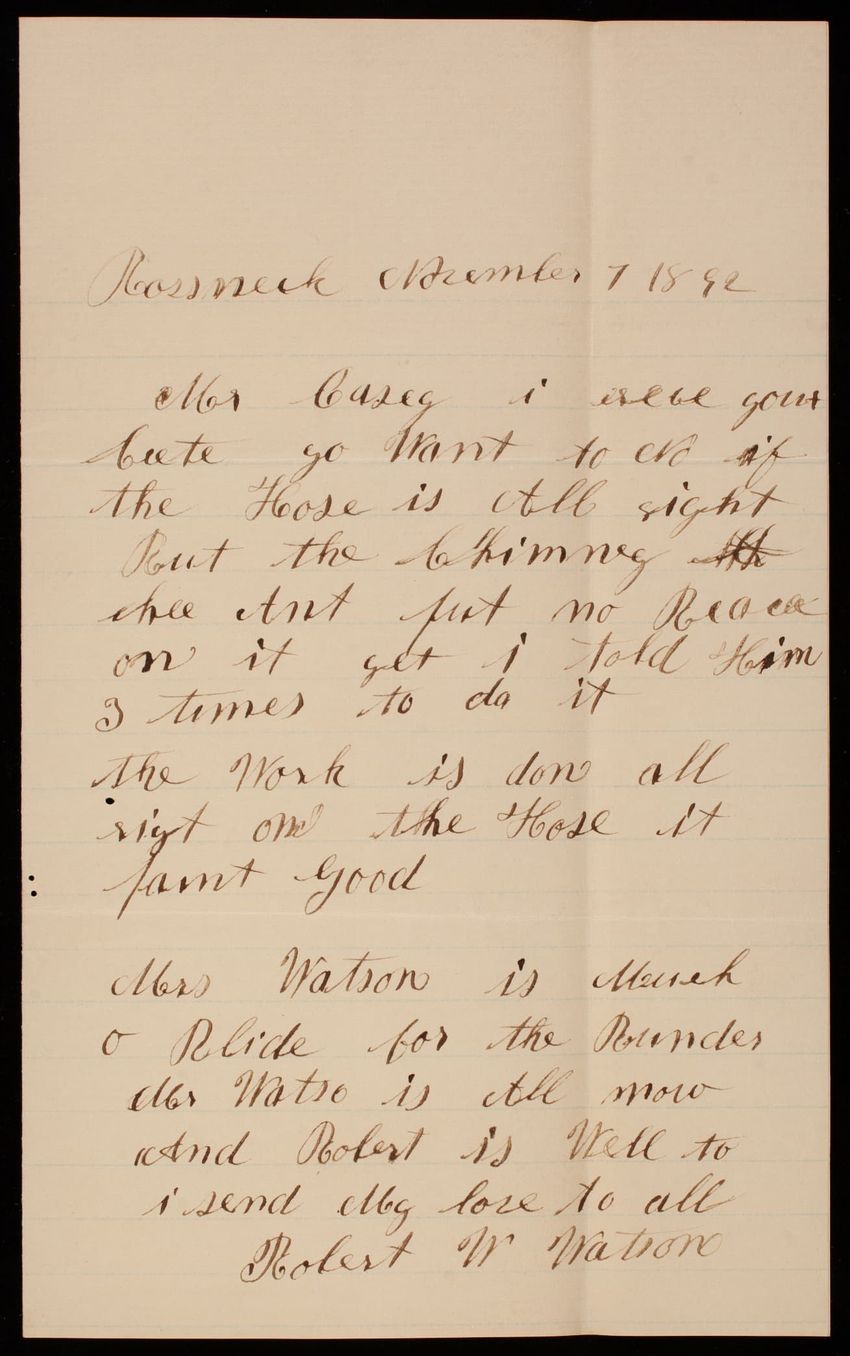 Rossneck November 7 1892
Mr Casey i receve your
Cute yo Want to No if
the Hose is All right
But the Chimney
hee Ant put no
on it yet i told Him
3 times to do it
the Work is don all
rigt on the Hose it
paint Good
Mrs Watson is Much
o Blide for the Runder
Mr Watso is All mow
And Robert is Well to
i send My love to all
Robert W Watson